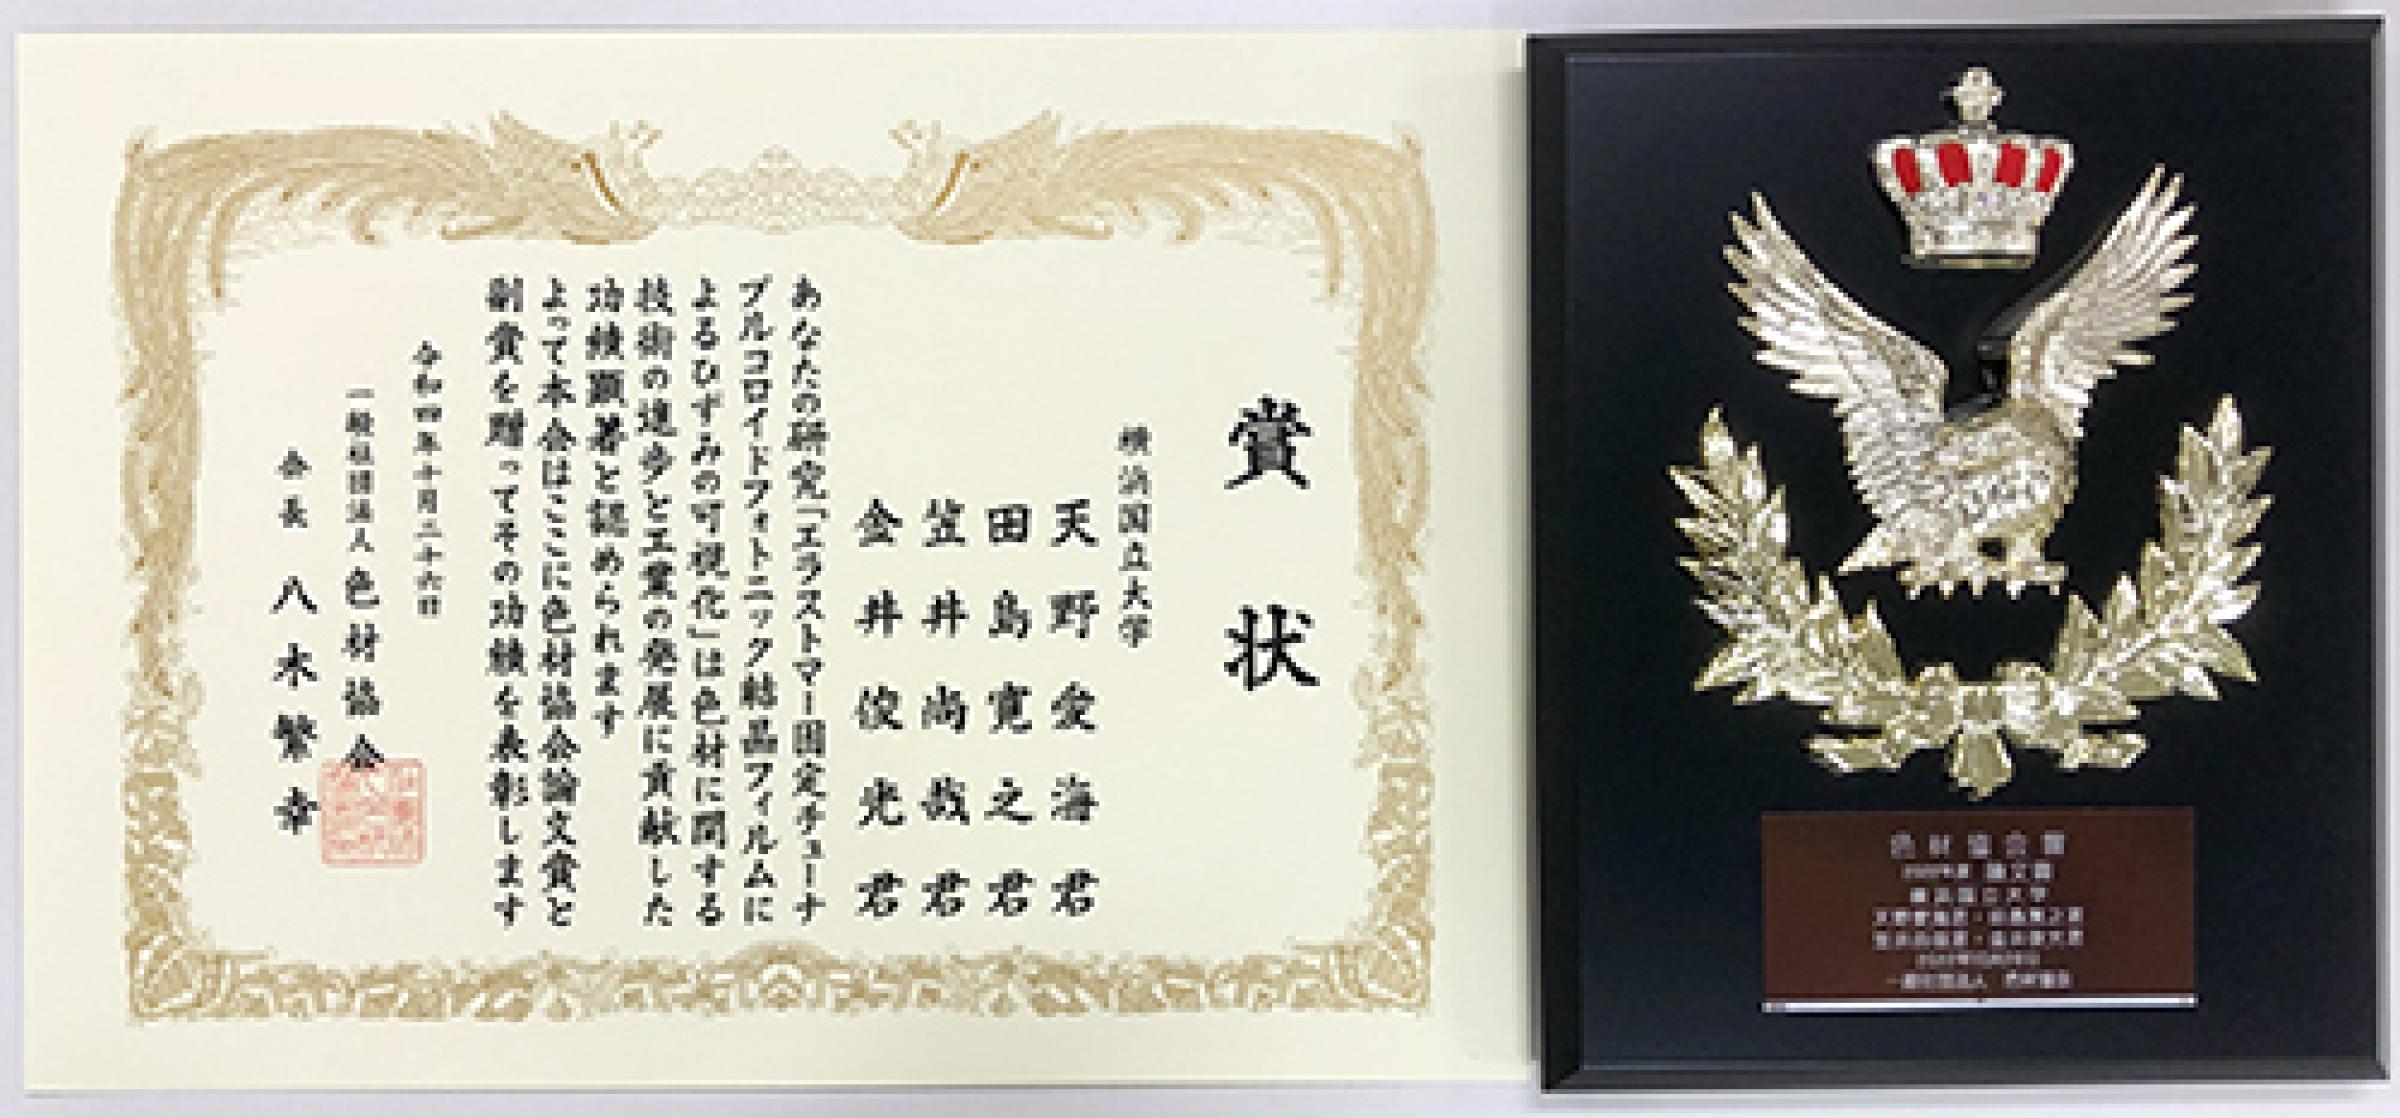 賞状
横浜国立大学
天野愛海君
田島寛之君
笠井尚哉君
金井俊光君
あなたの研究「エラストマー固定チューナ
ブルコロイドフォトニック結晶フィルムに
よるひずみの可視化」は色材に関する
技術の進歩と工業の発展に貢献した
功績顕著と認められます
よって本会はここに色材協会論文賞と
副賞を贈ってその功績を表彰します
令和四年十月二十六日
一般社団法人色材協会
会長 八木繁幸
色材協会賞
2022年度 論文賞
横浜国立大学
天野愛海君・田島寛之君
笠井尚哉君・金井俊光君
2022年10月26日
一般社団法人 色材協会